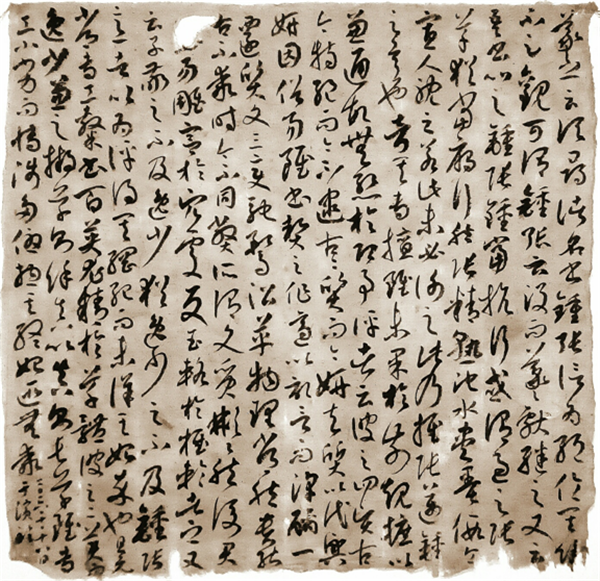 羲之云頃尋諸名書鍾張信為絕倫其餘
不足觀可謂鍾張云沒而羲獻繼之又云
吾書比之鍾張鍾當抗行或謂過之張
草猶當雁行然張精熟池水盡墨假令
寡人耽之若此未必謝之此乃推張邁鍾
之意也考其專擅雖未果於前規摭以
兼通故無慚於即事評者云彼之四賢古
今特絕而今不逮古質而今妍夫質以代興
妍因俗易雖書契之作適以記言而淳醨一
遷質文三變馳騖沿革物理常然貴能
古不乖時今不同弊所謂文質彬彬然後君
易雕宮於穴處反玉輅於椎輪者乎又
云子敬之不及逸少猶逸少之不及鍾張
意者以為評得其綱紀而未詳其始卒也且元
常專工於隸書百英尤精於草體彼之二美而
逸少兼之擬草則餘真比真則長草雖專
工小劣而博涉多優總其終始匪無乖